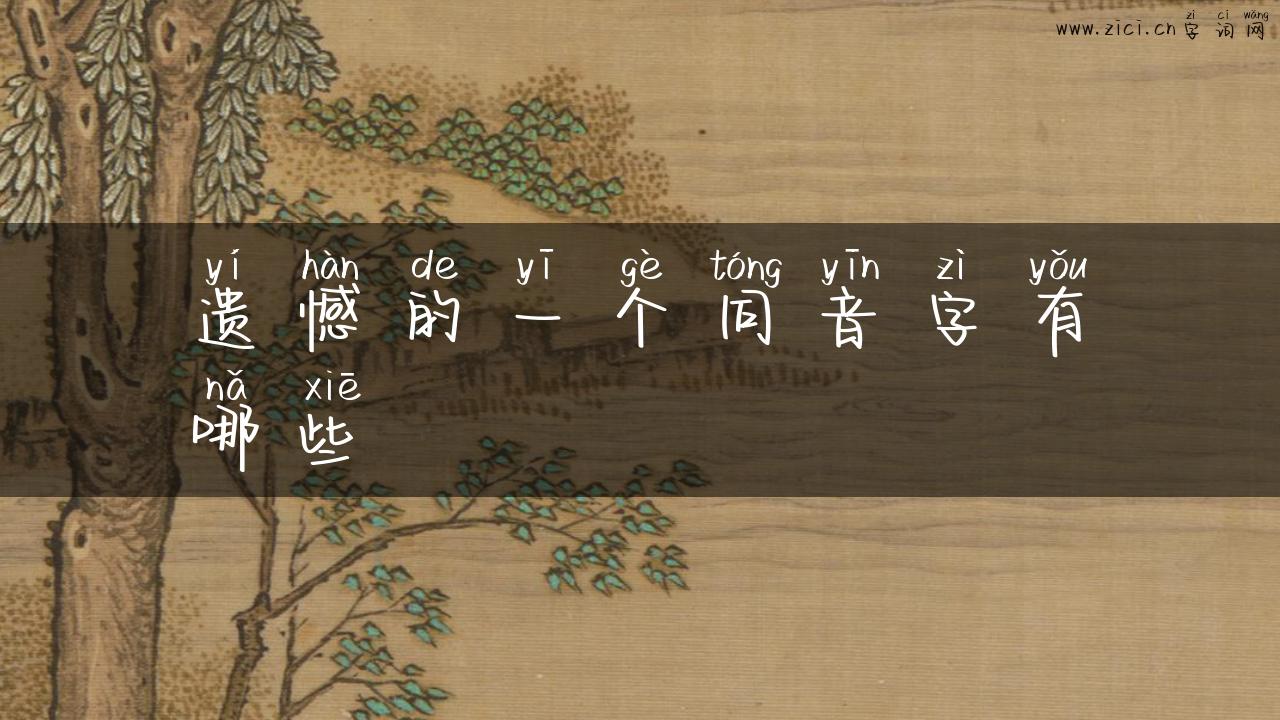 zì cí wǎng
www.zici.cn 字词网
yí hàn de yī gè tóng yīn zì yǒu
遗憾的一个同音字有
nǎ xiē
哪些